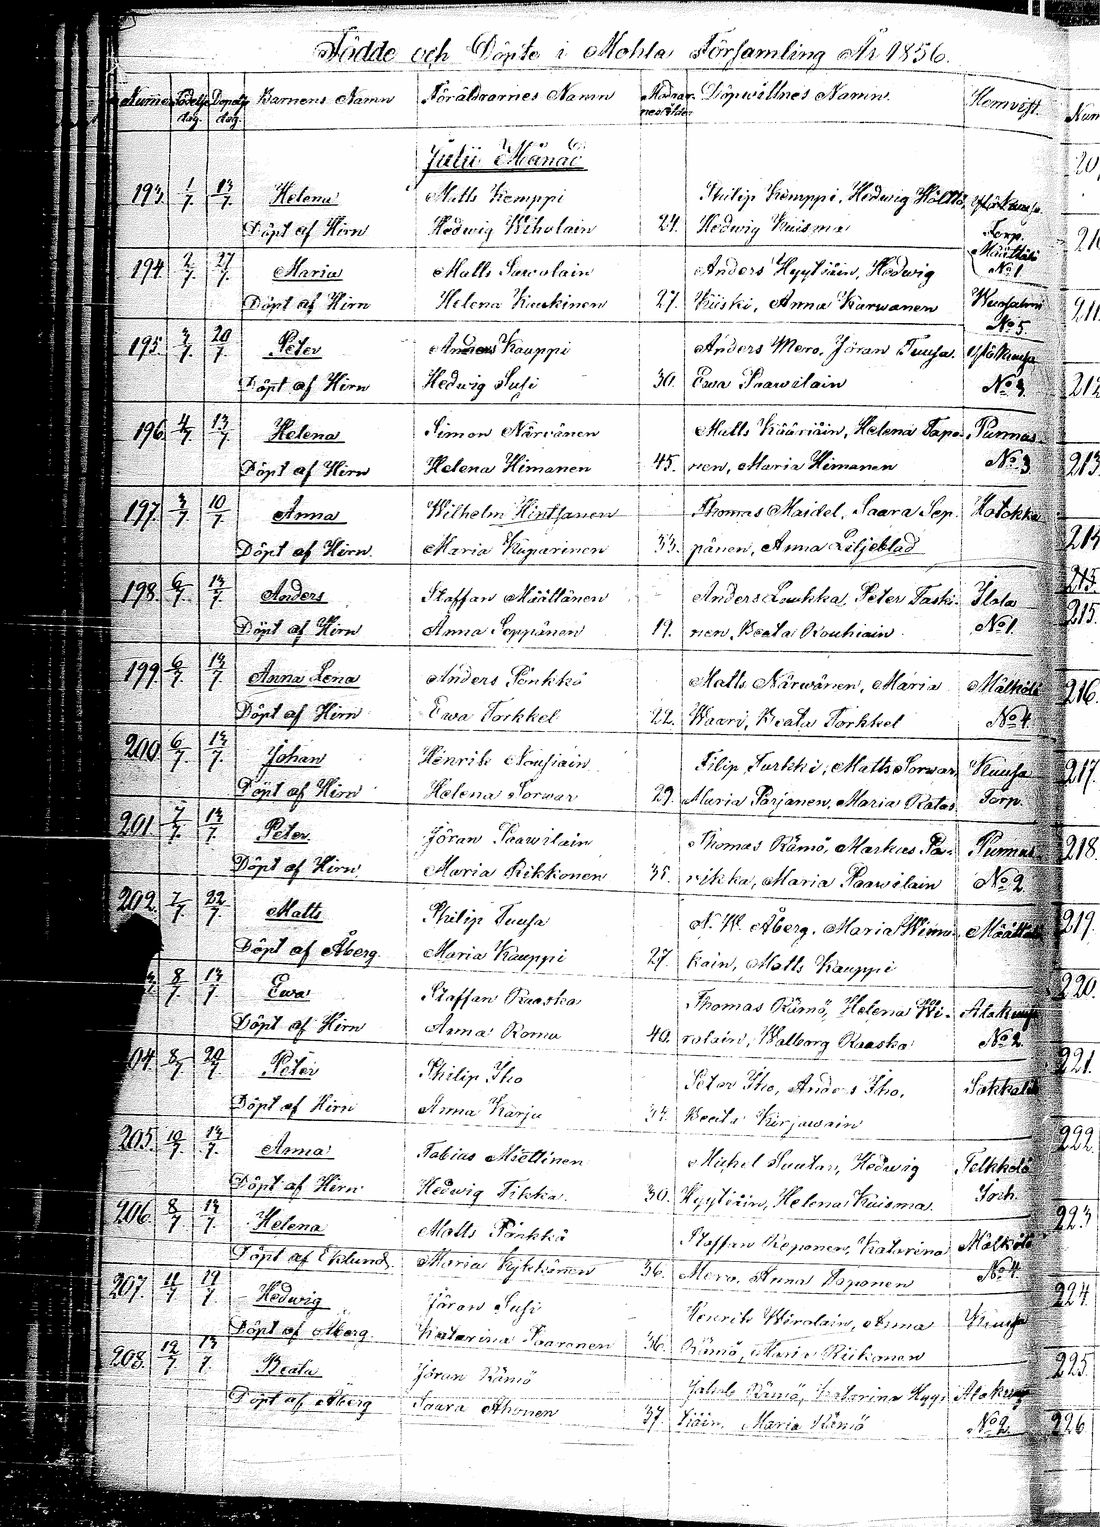 Födde och Döpte i Mohla Församling År 1856.
Födelse dag. Döpelse dag. Barnens Namn Föräldrarnes Namn Modrarnes ålder Döpvittnes Namn Hemvist.
Julii Månad
193. 1/7 13/7 Helena Matts Kemppi Philip Kemppi, Hedwig
Döpt af Hirn Hedwig 24. Hedwig Kuisma Torp.
194. 2/7 27/7 Maria Matts Anders Hyytiäin, Hedwig No 1
Döpt af Hirn Helena Kaukinen 27. Kiiski, Anna Karwanen No 5
195. 3/7 20/7 Peter Anders Kauppi Anders Mero, Jöran Tuusa.
Döpt af Hirn Hedwig Susi 30. Ewa Paawilain No 3
196. 4/7 13/7 Helena Simon Närwänen Matts Kääriäin, Helena Tapo- Punnus
Döpt af Hirn Helena Himanen 45. nen, Maria Himanen No 3
197. 3/7 10/7 Anna Wilhelm Hintsanen Thomas Maidel, Saara Sep- Hotokka
Döpt af Hirn. Maria Kuparinen 33. pänen, Anna Liljeblad
198. 6/7 13/7 Anders Staffan Määttänen Anders Loukka, Peter Taski- Ilola
Döpt af Hirn Anna Seppänen 19. nen, Beata Rouhiain No 1.
199. 6/7 13/7 Anna Lena Anders Pönkkö Matts Närwänen, Maria Mälkölä
Döpt af Hirn Ewa Torkkel 22. Waari, Beata Torkkel No 4
200. 6/7 13/7 Johan Henrik Nousiain Filip Turkki, Matts Porwar, Kuusa
Döpt af Hirn Helena Porwar 29. Maria Parjanen, Maria Ratas Torp.
201. 7/7 13/7 Peter Jöran Paawilain Thomas Rämö, Markus Pa- Punnus
Döpt af Hirn Maria Rikkonen 35. rikka, Maria Paawilain No 2
202. 7/7 22/7 Matts Philip Tuusa N. W. Åberg, Maria
Döpt af Åberg. Maria Kauppi 27. kain, Matts Kauppi
8/7 13/7 Ewa Staffan Raaska Thomas Rämö, Helena Wi- Alakuusa
Döpt af Hirn Anna Romu 40. rolain, Walborg Raaska No 2
04. 8/7 20/7 Peter Philip Iho Peter Iho, Anders Iho, Sokkala
Döpt af Hirn Anna Karju Beata
205. 10/7 13/7 Anna Tobias Miettinen Michel Suutar, Hedwig Telkkälä
Döpt af Hirn Hedwig Tikka. 30. Hyytiäin, Helena Kuisma.
206. 8/7 13/7 Helena Matts Pönkkö Staffan Reponen, Katarina Mälkölä
Döpt af Eklund. Maria 36. Mero, Anna Taponen No 4.
207. 11/7 19/7 Hedwig Jöran Susi Henrik Wirolain, Anna Kuusa
Döpt af Åberg. Katarina Paaronen 36. Rämö, Maria Riikonen
208. 12/7 13/7 Beata Jöran Rämö Jakob Rämö, Katarina Hyy- Alakuusa
Döpt af Åberg Saara Ahonen 37. tiäin, Maria Rämö No 2.
211.
212
213
214
215.
215.
216.
217.
218.
219.
220.
221.
222.
223
224.
225.
226